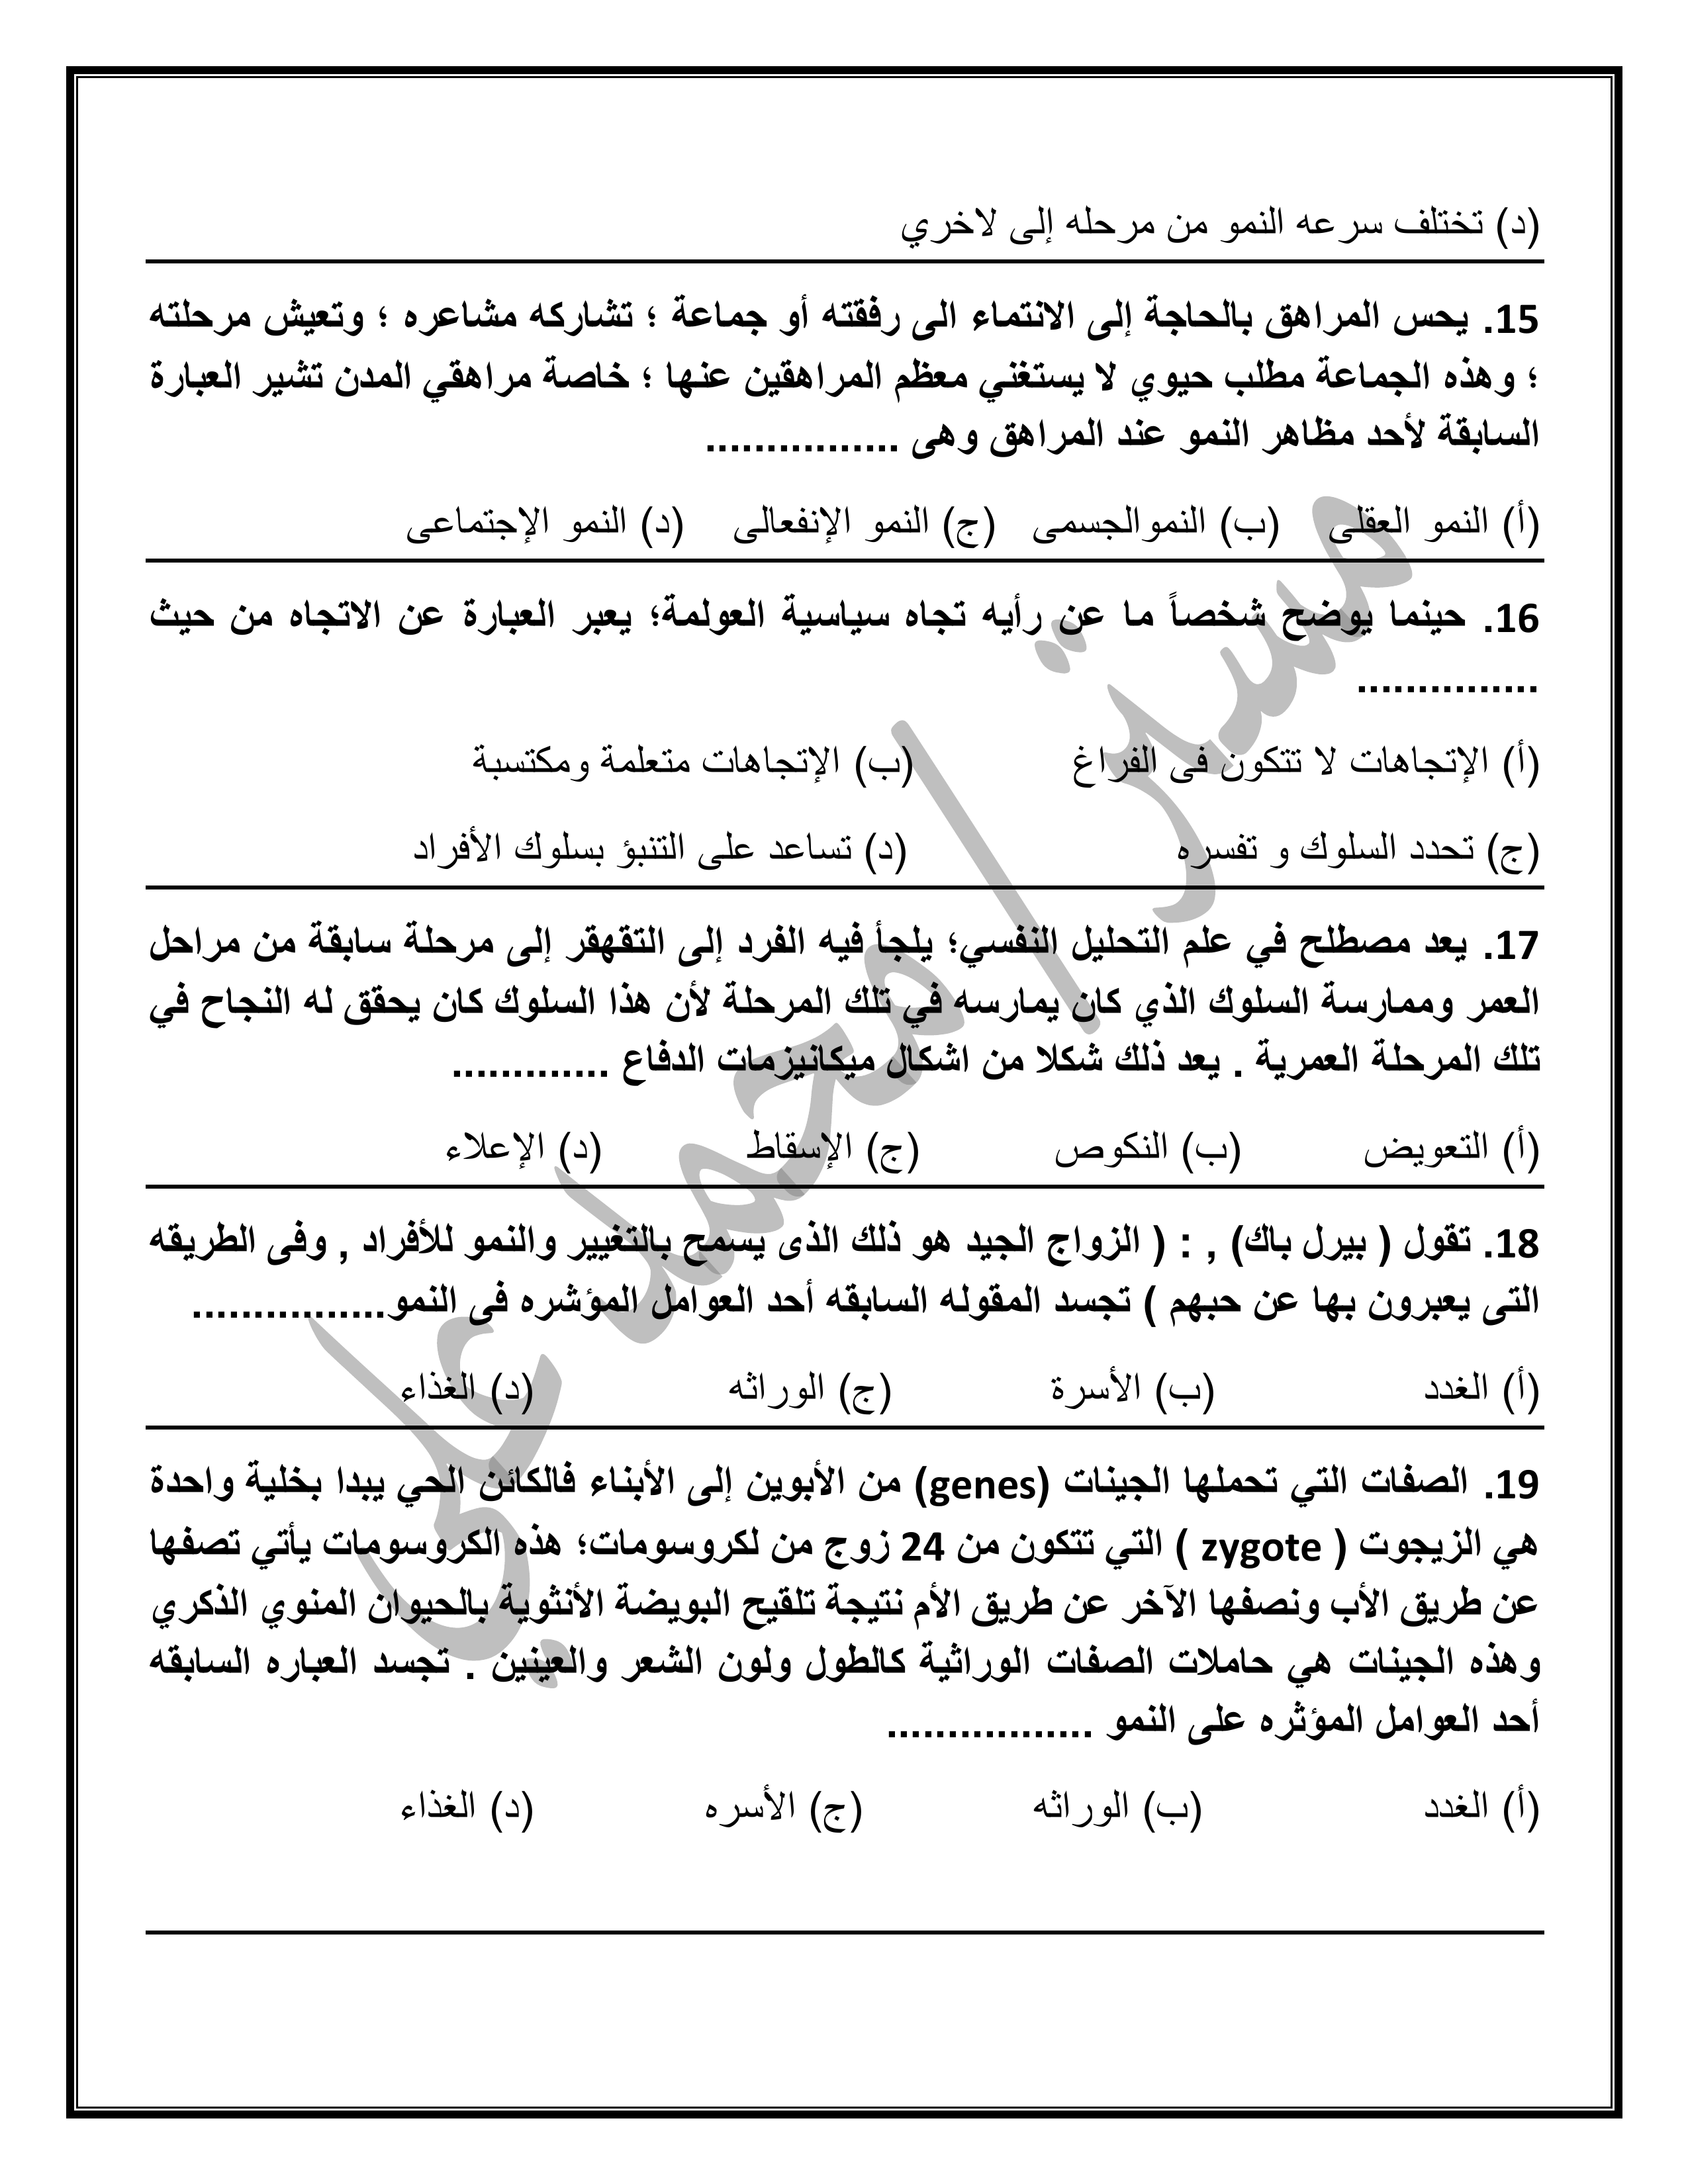 (د) تختلف سرعه النمو من مرحله إلى لاخري
15. يحس المراهق بالحاجة إلى الانتماء الى رفقته أو جماعة ؛ تشاركه مشاعره ؛ وتعيش مرحلته
؛ وهذه الجماعة مطلب حيوي لا يستغني معظم المراهقين عنها ؛ خاصة مراهقي المدن تشير العبارة
السابقة لأحد مظاهر النمو عند المراهق وهى ................
(أ) النمو العقلى (ب) النموالجسمى (ج) النمو الإنفعالى (د) النمو الإجتماعى
16. حينما يوضح شخصاً ما عن رأيه تجاه سياسية العولمة؛ يعبر العبارة عن الاتجاه من حيث
...............
(أ) الإتجاهات لا تتكون فى الفراغ (ب) الإتجاهات متعلمة ومكتسبة
(ج) تحدد السلوك و تفسره (د) تساعد على التنبؤ بسلوك الأفراد
17. يعد مصطلح في علم التحليل النفسي؛ يلجأ فيه الفرد إلى التقهقر إلى مرحلة سابقة من مراحل
العمر وممارسة السلوك الذي كان يمارسه في تلك المرحلة لأن هذا السلوك كان يحقق له النجاح في
تلك المرحلة العمرية . يعد ذلك شكلا من اشكال ميكانيزمات الدفاع .............
(أ) التعويض (ب) النكوص (ج) الإسقاط (د) الإعلاء
18. تقول ( بيرل باك) , : ( الزواج الجيد هو ذلك الذى يسمح بالتغيير والنمو للأفراد , وفى الطريقه
التى يعبرون بها عن حبهم ) تجسد المقوله السابقه أحد العوامل المؤشره فى النمو................
(أ) الغدد (ب) الأسرة (ج) الوراثه (د) الغذاء
19. الصفات التي تحملها الجينات (genes) من الأبوين إلى الأبناء فالكائن الحي يبدا بخلية واحدة
هي الزيجوت ( zygote ) التي تتكون من 24 زوج من لكروسومات؛ هذه الكروسومات يأتي تصفها
عن طريق الأب ونصفها الآخر عن طريق الأم نتيجة تلقيح البويضة الأنثوية بالحيوان المنوي الذكري
وهذه الجينات هي حاملات الصفات الوراثية كالطول ولون الشعر والعينين . تجسد العباره السابقه
أحد العوامل المؤثره على النمو .................
(أ) الغدد (ب) الوراثه (ج) الأسره (د) الغذاء
مستر/محمد علي